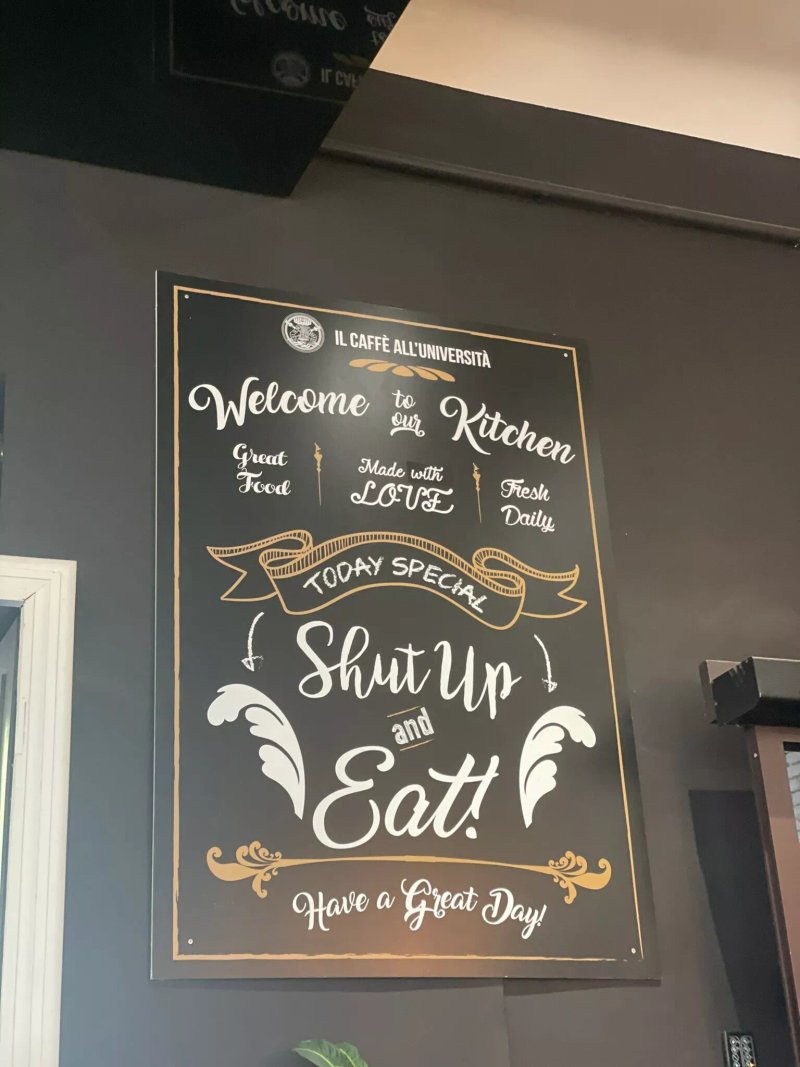 IL CAFFÈ ALL'UNIVERSITÀ
Welcome to our Kitchen
Great Food
Made with LOVE
Fresh Daily
TODAY SPECIAL
Shut Up
and
Eat!
Have a Great Day!